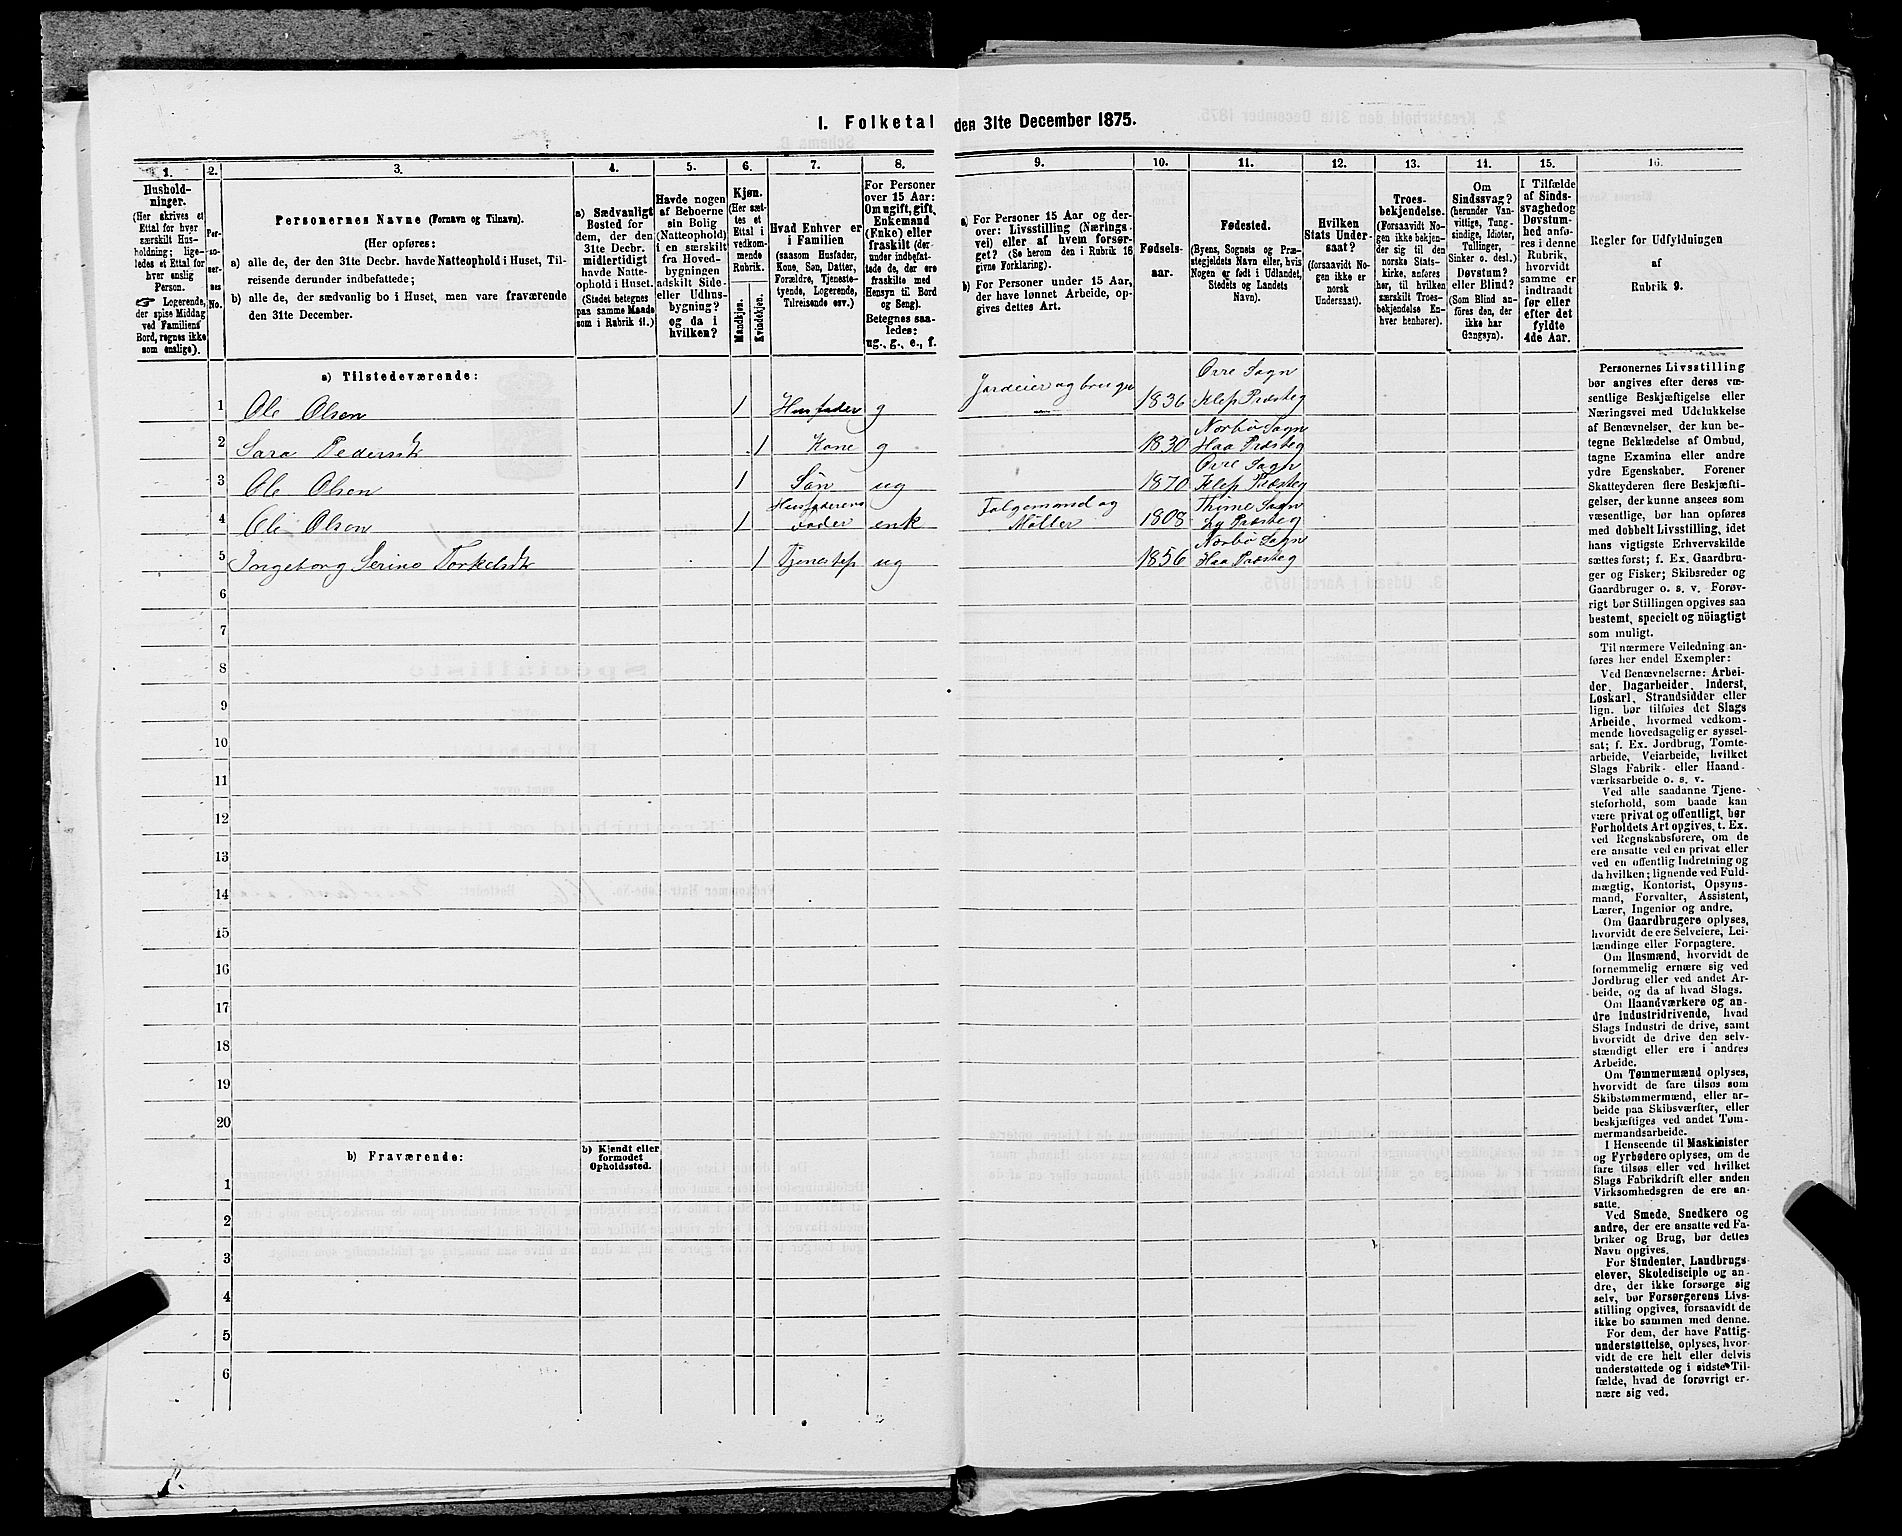 1. Folketal den 31te December 1875.
1.
Hushold-
ninger.
(Her skrives et
Ettal for hver
særskilt Hus-
holdning; lige-
ledes et Ettal for
hver enslig
Person.
☞ Logerende,
der spise Middag
ved Familiens
Bord, regnes ikke
som enslige).
2.
Per-
so-
ner-
nes
No.
3.
Personernes Navne (Fornavn og Tilnavn).
(Her opføres:
a) alle de, der den 31te Decbr. havde Natteophold i Huset, Til-
reisende derunder indbefattede;
b) alle de, der sædvanlig bo i Huset, men vare fraværende
den 31te December.
4.
a) Sædvanligt
Bosted for
dem, der den
31te Decbr.
midlertidigt
havde Natte-
ophold i Huset.
(Stedet betegnes
paa samme Maade
som i Rubrik 11.)
5.
Havde nogen
af Beboerne
sin Bolig
(Natteophold)
i en særskilt
fra Hoved-
bygningen
adskilt Side-
eller Udhus-
bygning?
og da i
hvilken?
6.
Kjøn.
(Her sæt-
tes et
Ettal i
vedkom-
mende
Rubrik.
Mandkjøn.
Kvindekjøn.
7.
Hvad Enhver er
i Familien
(saasom Husfader,
Kone, Søn, Datter,
Forældre, Tjeneste-
tyende, Logerende,
Tilreisende osv.)
8.
For Personer
over 15 Aar:
Om ugift, gift,
Enkemand
(Enke) eller
fraskilt (der-
under indbefat-
tede de, der ere
fraskilte med
Hensyn til Bord
og Seng).
Betegnes saa-
ledes:
ug., g., e., f.
9.
a) For Personer 15 Aar og der-
over: Livsstilling (Nærings-
vei) eller af hvem forsør-
get? (Se herom den i Rubrik 16
givne Forklaring).
b) For Personer under 15 Aar,
der have lønnet Arbeide, op-
gives dettes Art.
10.
Fødsels-
aar.
11.
Fødested.
(Byens, Sognets og Præ-
stegjeldets Navn eller, hvis
Nogen er født i Udlandet,
Stedets og Landets
Navn).
12.
Hvilken
Stats Under-
saat?
(forsaavidt No-
gen ikke er
norsk
Undersaat).
13.
Troes-
bekjendelse.
(Forsaavidt No-
gen ikke bekjen-
der sig til den
norske Stats-
kirke, anføres
her, til hvilken
særskilt Troes-
bekjendelse En-
hver henhører).
14.
Om
Sindssvag?
(herunder Van-
vittige, Tung-
sindige, Idioter,
Tullinger,
Sinker o. desl.)
Døvstum?
eller Blind?
(Som Blind an-
føres den, der
ikke har
Gangsyn).
15.
I Tilfælde
af Sinds-
svaghed og
Døvstum-
hed anfø-
res i denne
Rubrik,
hvorvidt
samme er
indtraadt
før eller
efter det
fyldte
4de Aar.
16.
Regler for Udfyldningen
af
Rubrik 9.
a) Tilstedeværende:
1 Ole Olsen 1 Husfader g Jordeier og bruger 1836 Orre Sogn
Klep Præsteg
2 Sara Pedersdt 1 Kone g 1830 Norbø Sogn
Haa Præsteg
3 Ole Olsen 1 Søn ug 1870 Orre Sogn
Klep Præsteg
4 Ole Olsen 1 Husfaderens
vader enk Folgemand og
Møller 1808 Thime Sogn
Ly Præsteg
5 Ingeborg Serine Torkelsdt 1 Tjenestep ug 1856 Norbø Sogn
Haa Præsteg
6
7
8
9
10
11
12
13
14
15
16
17
18
19
20
b) Fraværende:
b) Kjendt eller
formodet
Opholdssted.
1
2
3
4
5
6
Personernes Livsstilling
bør angives efter deres væ-
sentlige Beskjæftigelse eller
Næringsvei med Udelukkelse
af Benævnelser, der kun be-
tegne Beklædelse af Ombud,
tagne Examina eller andre
ydre Egenskaber. Forener
Skatteyderen flere Beskjæfti-
gelser, der kunne ansees som
væsentlige, bør han opføres
med dobbelt Livsstilling, idet
hans vigtigste Erhvervskilde
sættes først; f. Ex. Gaardbru-
ger og Fisker; Skibsreder og
Gaardbruger o. s. v. Forøv-
rigt bør Stillingen opgives saa
bestemt, specielt og nöiagtigt
som muligt.
Til nærmere Veiledning an-
føres her endel Exempler:
Ved Benævnelserne: Arbei-
der, Dagarbeider, Inderst,
Løskarl, Strandsidder eller
lign. bør tilføies det Slags
Arbeide, hvormed vedkom-
mende hovedsagelig er syssel-
sat; f. Ex. Jordbrug, Tomte-
arbeide, Veiarbeide, hvilket
Slags Fabrik- eller Haand-
værksarbeide o. s. v.
Ved alle saadanne Tjene-
steforhold, som baade kan
være privat og offentligt, bør
Forholdets Art opgives, t. Ex.
ved Regnskabsførere, om de
ere ansatte ved en privat eller
ved en offentlig Indretning og
da hvilken; lignende ved Fuld-
mægtig, Kontorist, Opsyns-
mand, Forvalter, Assistent,
Lærer, Ingeniør og andre.
Om Gaardbrugere oplyses,
hvorvidt de ere Selveiere, Lei-
lændinge eller Forpagtere.
Om Husmænd, hvorvidt de
fornemmelig ernære sig ved
Jordbrug eller ved andet Ar-
beide, og da af hvad Slags.
Om Haandværkere og an-
dre Industridrivende, hvad
Slags Industri de drive, samt
hvorvidt de drive den selv-
stændigt eller ere i andres
Arbeide.
Om Tømmermænd oplyses,
hvorvidt de fare tilsøs som
Skibstømmermænd, eller ar-
beide paa Skibsværfter, eller
beskjæftiges ved andet Tøm-
mermandsarbeide.
I Henseende til Maskinister
og Fyrbødere oplyses, om de
fare tilsøs eller ved hvilket
Slags Fabrikdrift eller anden
Virksomhedsgren de ere an-
satte.
Ved Smede, Snedkere og
andre, der ere ansatte ved Fa-
briker og Brug, bør dettes
Navn opgives.
For Studenter, Landbrugs-
elever, Skoledisciple og an-
dre, der ikke forsørge sig
selv, bør Forsørgerens Livs-
stilling opgives, forsaavidt de
ikke bo sammen med denne.
For dem, der have Fattig-
understøttelse, oplyses, hvor-
vidt de ere helt eller delvis
understøttede og i sidste Til-
fælde, hvad de forøvrigt er-
nære sig ved.